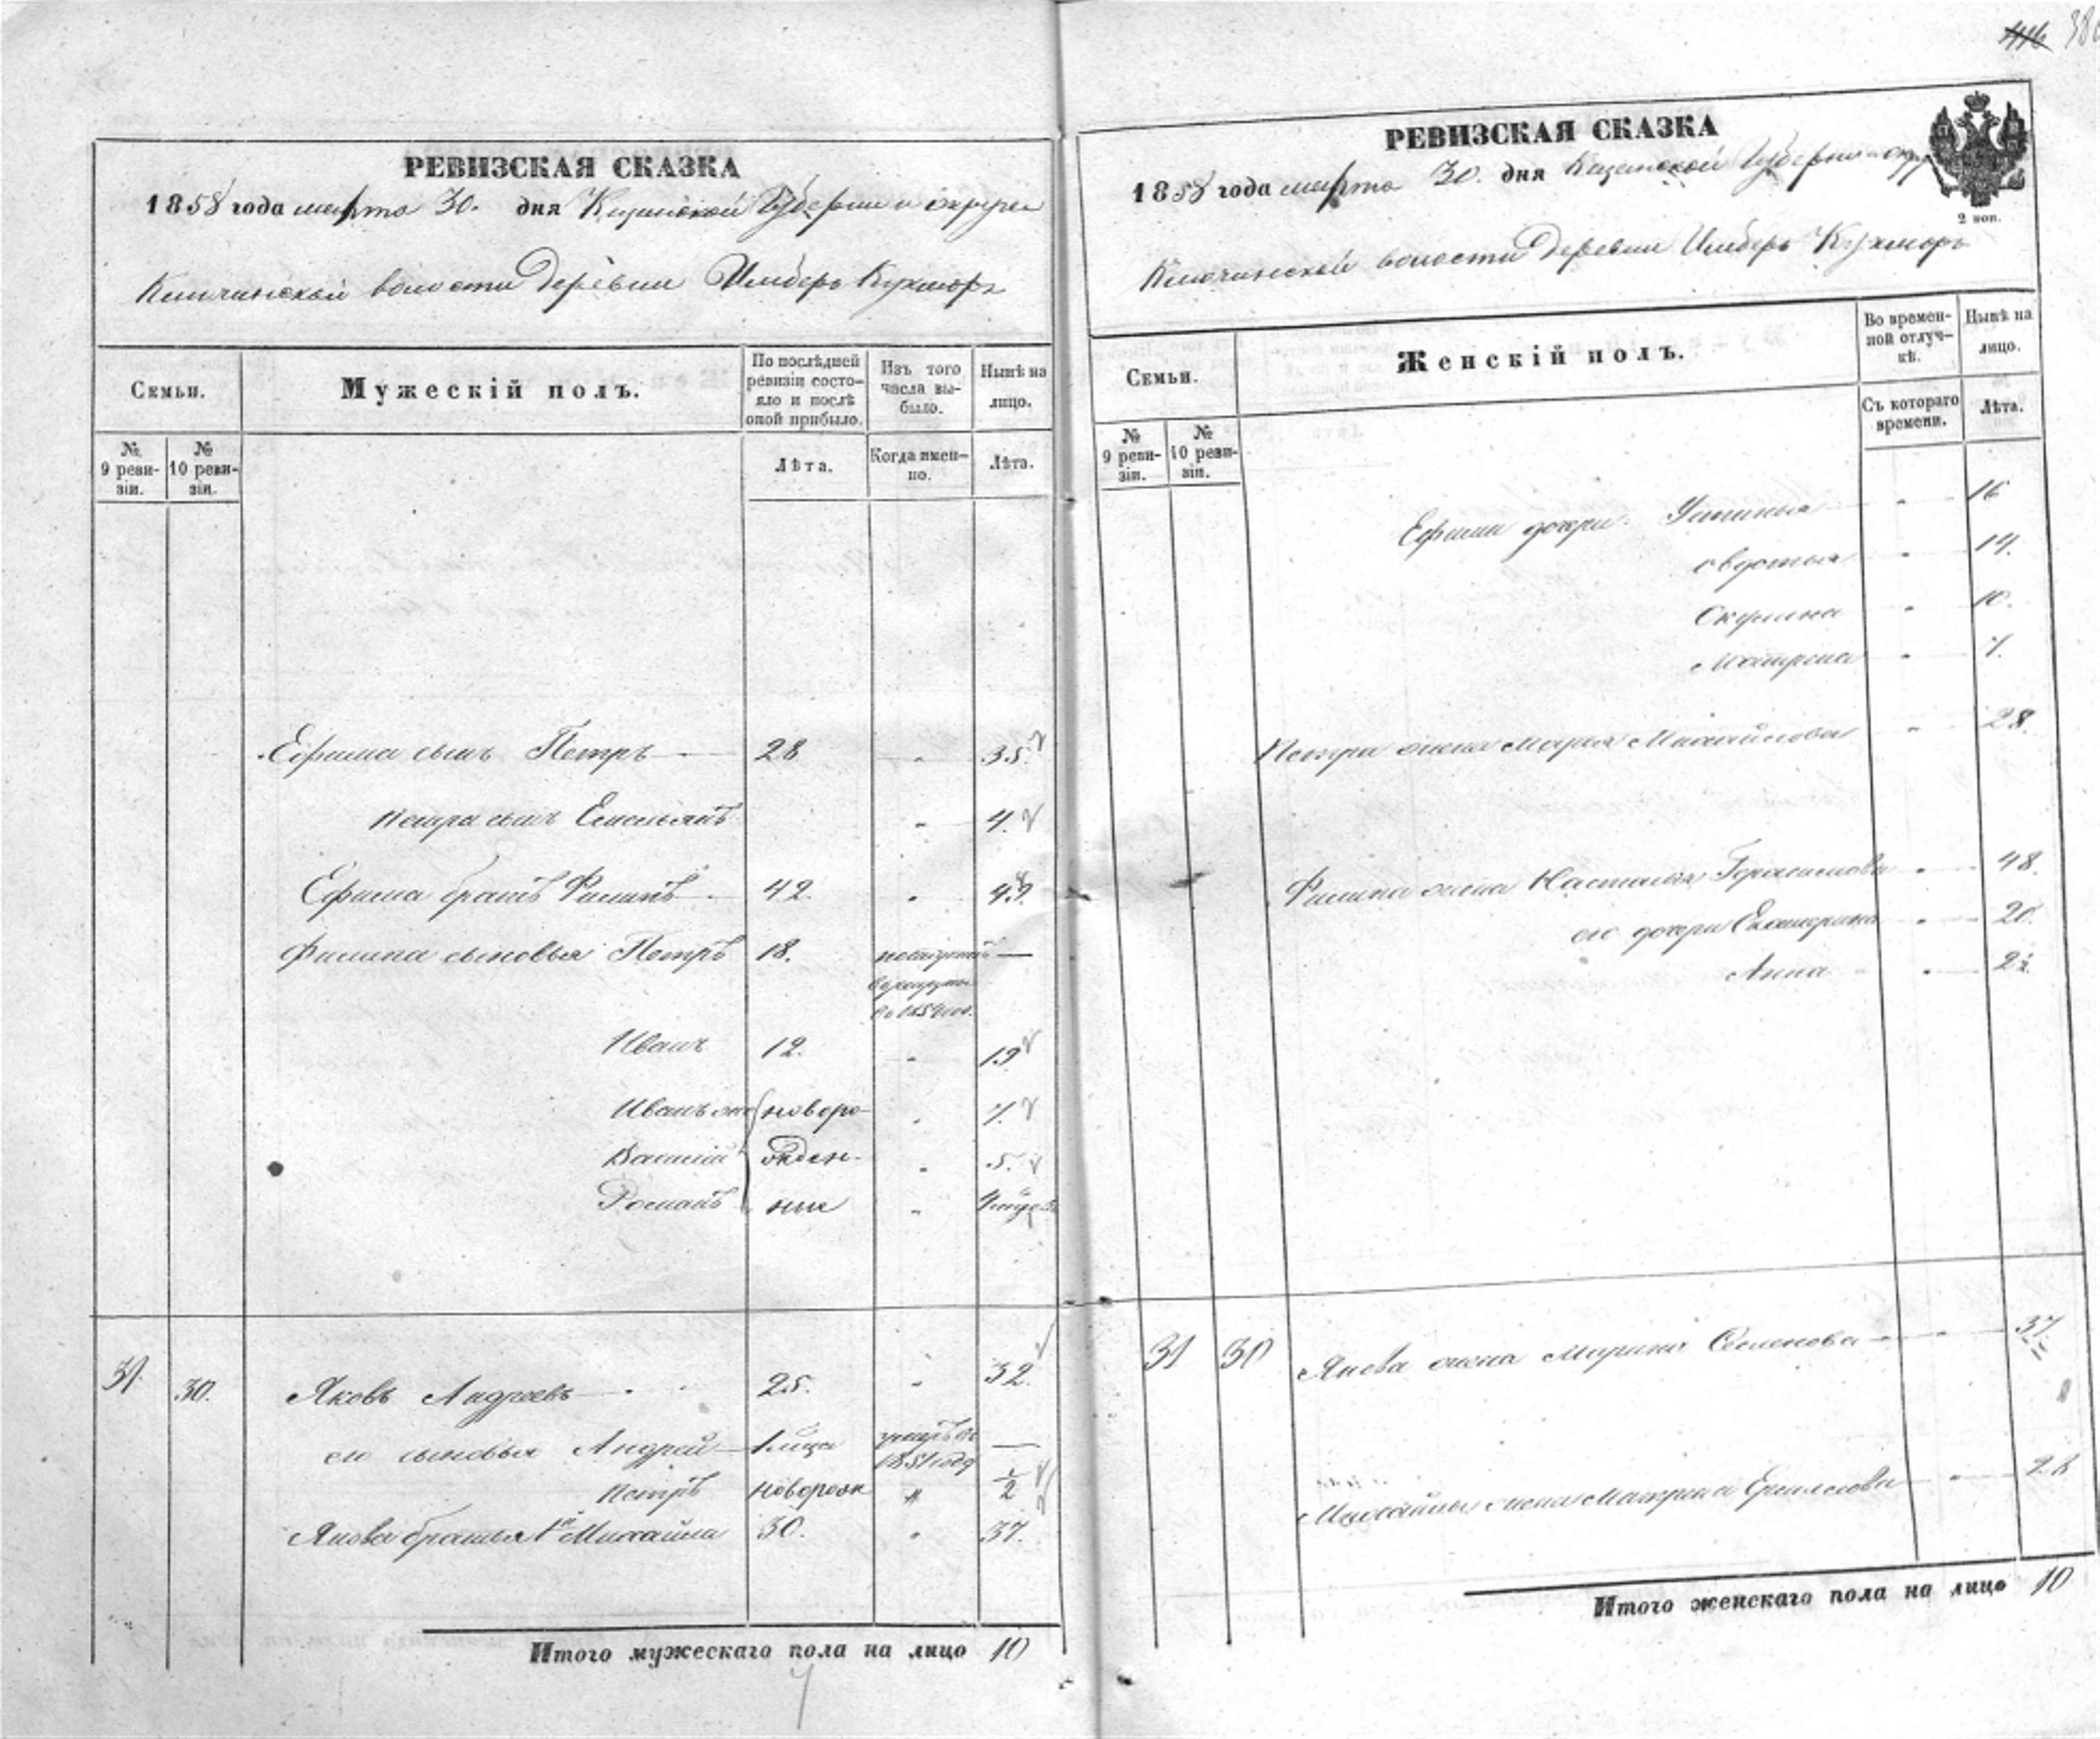 38
РЕВИЗСКАЯ СКАЗКА
1858 года марта 30. дня Казанской Губернии и округи
волости Деревни Имберь Кухморъ
Семьи.
Мужескій полъ.
По послѣдней ревизіи состо-
яло и послѣ
оной прибыло.
Изъ того
числа вы-
было.
Нынѣ на
лицо.
№
9 реви-
зіи.
№
10 реви-
зіи.
Лѣта.
Когда имен-
но.
Лѣта.
Ефима сынъ Петръ 28 " 35.
Петра сынъ Емельянъ " 4.
Ефима братъ Филипъ 42. "
Филипа сыновья Петръ 18. поступилъ —
в рекруты
Иванъ 12. " 19
Иванъ же новоро- "
Василий жден- " 5.
Романъ ные "
31. 30. Яковъ Андреевъ 25. " 32.
его сыновья Андрей умеръ въ —
1851 году
Петръ новорож " 1/2
Якова братья 1й Михайла 30. " 37.
Итого мужескаго пола на лицо 10
РЕВИЗСКАЯ СКАЗКА
1858 года марта 30. дня Казанской Губернии и окру
2 коп.
волости Деревни Имберь Кухморъ
Семьи.
Женскій полъ.
Во времен-
ной отлуч-
кѣ.
Нынѣ на
лицо.
№
9 реви-
зіи.
№
10 реви-
зіи.
Съ котораго
времени.
Лѣта.
Ефима дочери Устинья " 16
" 14.
Окулина " 10.
Матрена "
Петра жена Марья Михайлова " 28.
Филипа жена Настасья Герасимова " 48.
его дочери Екатерина " 20.
Анна "
31 30 Якова жена Марина Семенова " 37.
Михайлы жена Матрена "
Итого женскаго пола на лицо 10